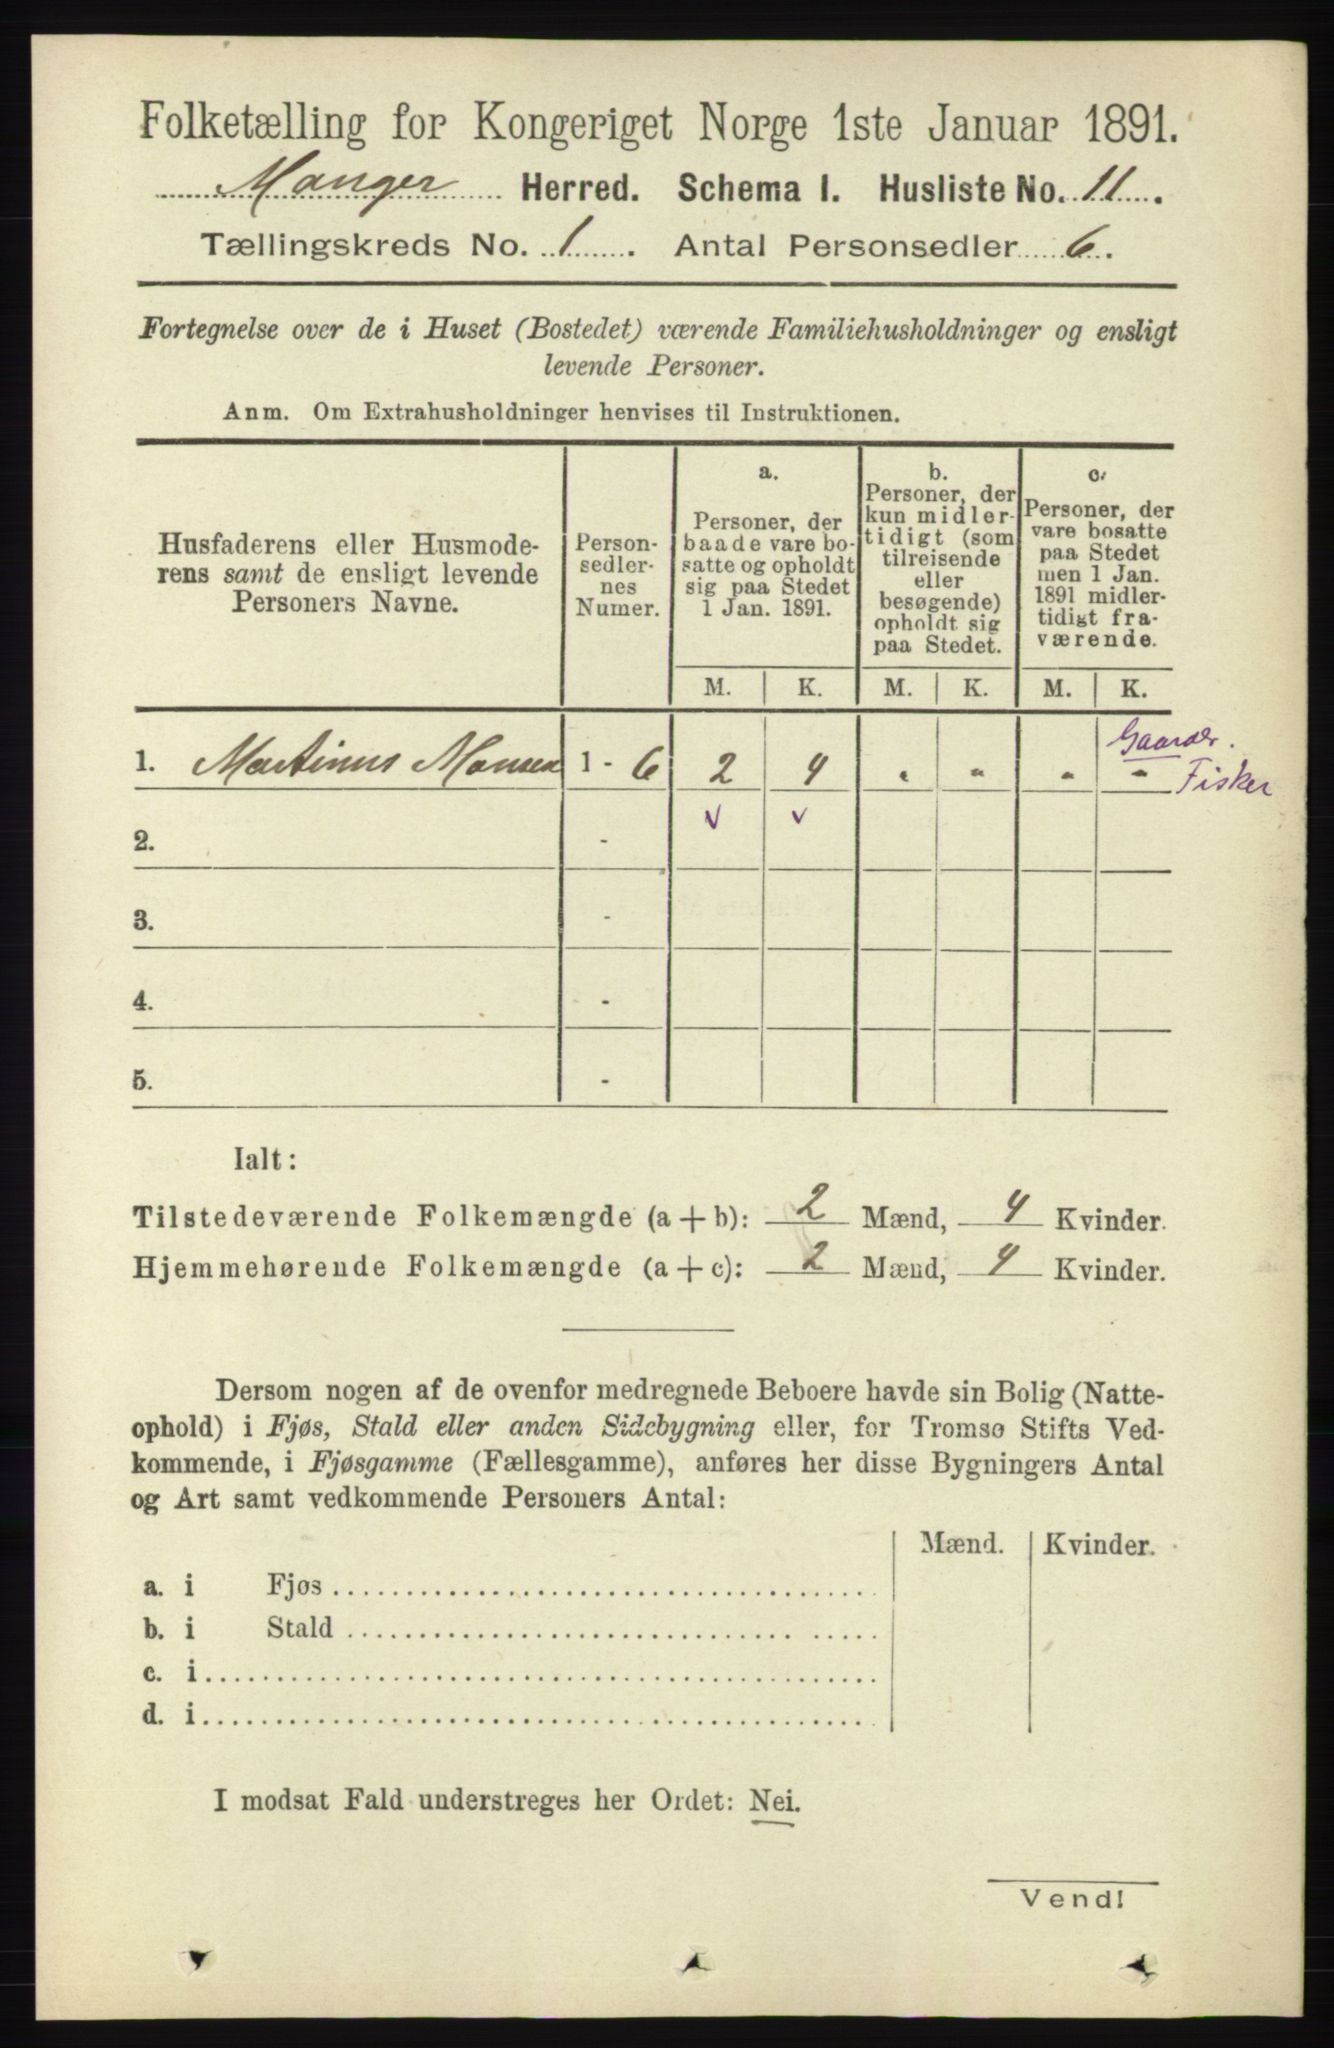 Folketælling for Kongeriget Norge 1ste Januar 1891.
Manger Herred. Schema I. Husliste No. 11.
Tællingskreds No. 1. Antal Personsedler 6.
Fortegnelse over de i Huset (Bostedet) værende Familiehusholdninger og ensligt
levende Personer.
Anm. Om Extrahusholdninger henvises til Instruktionen.
Husfaderens eller Husmode-
rens samt de ensligt levende
Personers Navne.
Person-
sedler-
nes
Numer.
a.
Personer, der
baade vare bo-
satte og opholdt
sig paa Stedet
1 Jan. 1891.
b.
Personer, der
kun midler-
tidigt (som
tilreisende
eller
besøgende)
opholdt sig
paa Stedet.
c.
Personer, der
vare bosatte
paa Stedet
men 1 Jan.
1891 midler-
tidigt fra-
værende.
M. K. M. K. M. K.
Gaardbr.
1. Martinus Monsen 1 - 6 2 4 " " " " Fisker
2. - v v
3. -
4. -
5. -
Ialt:
Tilstedeværende Folkemængde (a + b): 2 Mænd, 4 Kvinder.
Hjemmehørende Folkemængde (a + c): 2 Mænd, 4 Kvinder.
Dersom nogen af de ovenfor medregnede Beboere havde sin Bolig (Natte-
ophold) i Fjøs, Stald eller anden Sidebygning eller, for Tromsø Stifts Ved-
kommende, i Fjøsgamme (Fællesgamme), anføres her disse Bygningers Antal
og Art samt vedkommende Personers Antal:
Mænd. Kvinder.
a. i Fjøs
b. i Stald
c. i
d. i
I modsat Fald understreges her Ordet: Nei.
Vend!